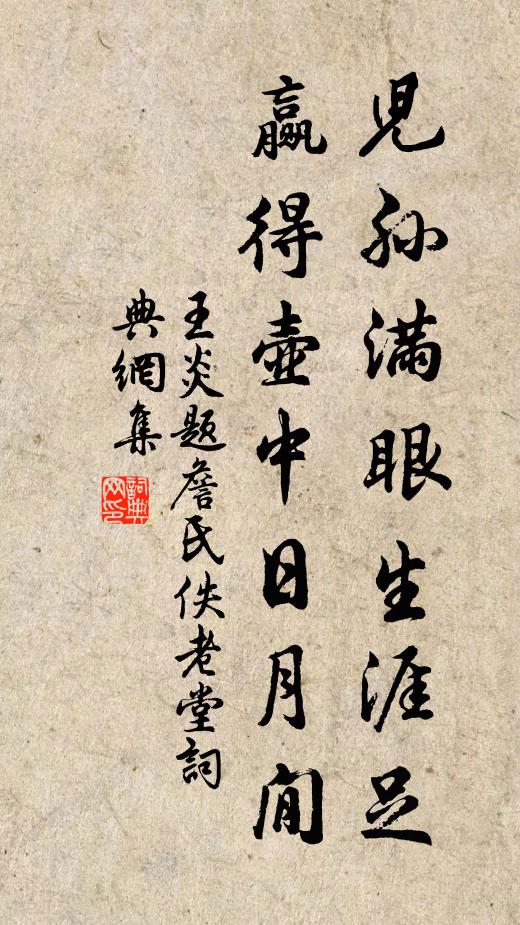 兒孫滿眼生涯足
贏得壺中日月閒
王炎題詹氏佚老堂詞
典網集
詞典
网印